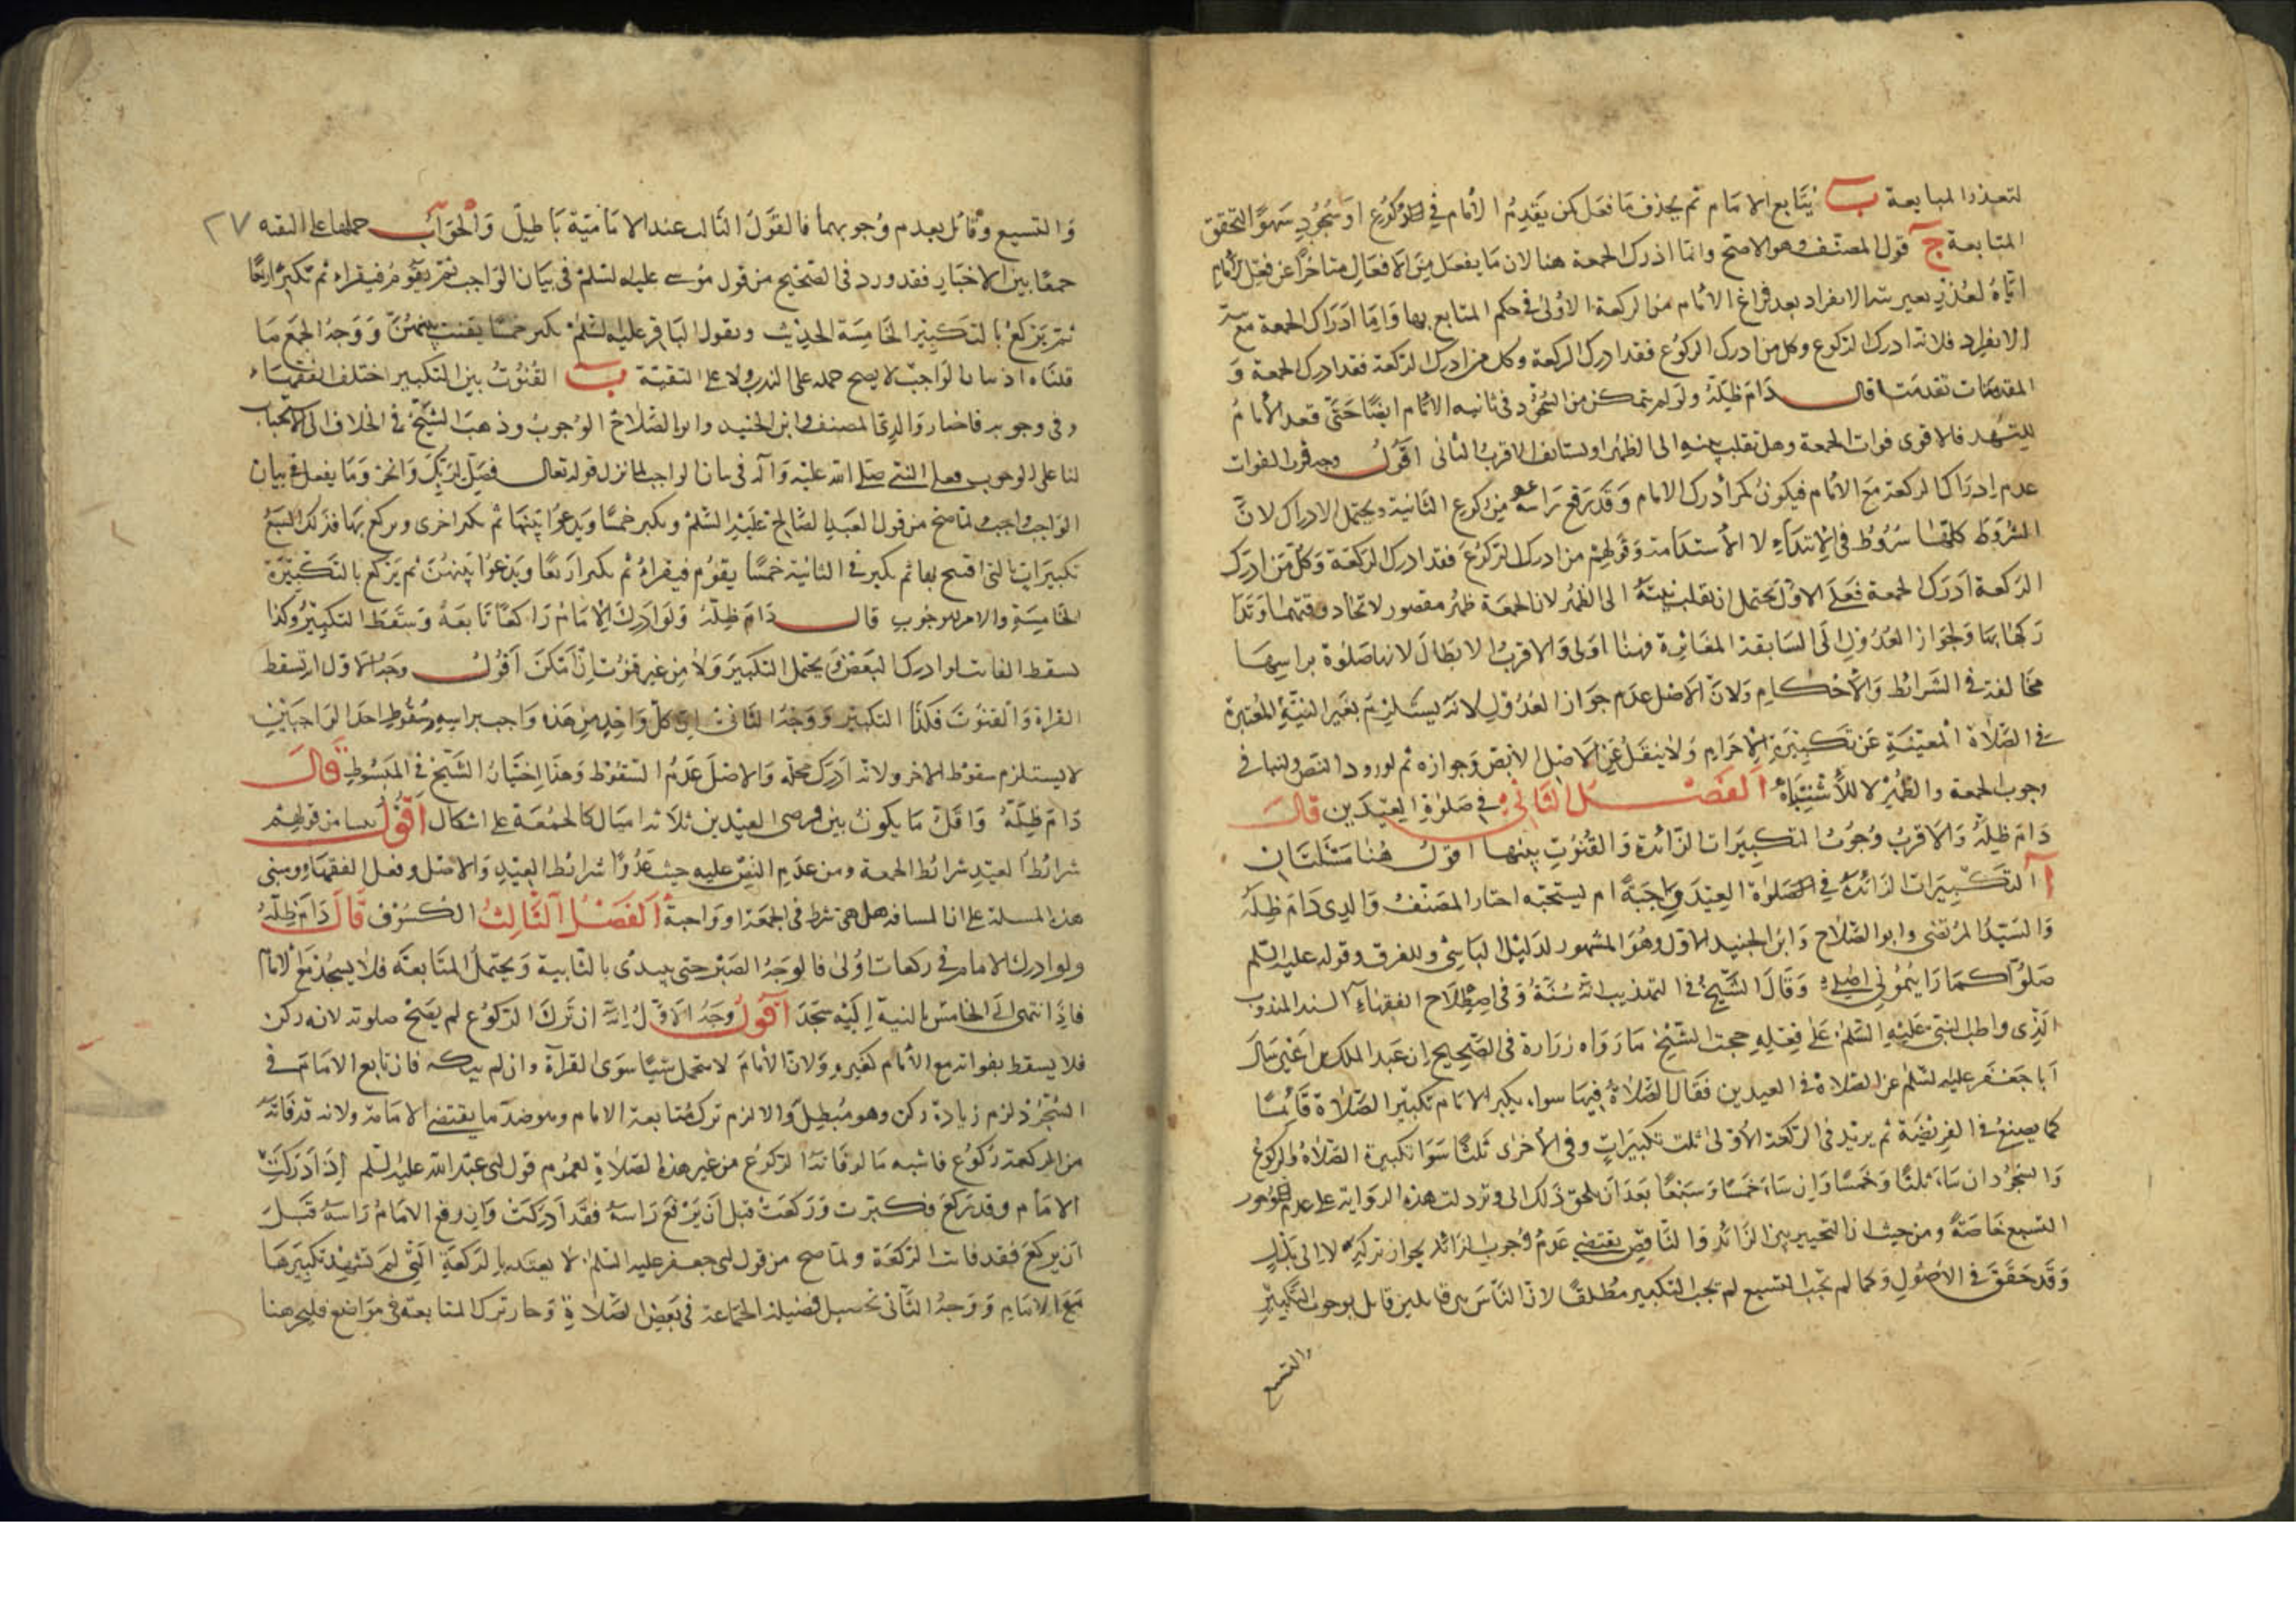 لتعذر المتابعة ب يتابع الامام ثم يحذف ما فعل كمن يقدم الامام في الركوع او سجود سهوا لتحقق
المتابعة ج قول المصنف وهو الاصح وانما ادرك الجمعة هنا لان ما يفعل من الافعال متاخرا عن فعل الامام
اياه لعذر بغير نية الانفراد بعد فراغ الامام من الركعة الاولى في حكم المتابع بها واما ادراك الجمعة مع نية
الانفراد فلانه ادرك الركوع وكل من ادرك الركوع فقد ادرك الركعة وكل من ادرك الركعة فقد ادرك الجمعة و
المقدمات تقدمت قال دام ظله ولو لم يتمكن من السجود في ثانية الامام ايضا حتى قعد الامام
للتشهد فالاقوى فوات الجمعة وهل تقلب نيته الى الظهر او يستانف الاقرب الثاني اقول وجه قرب الفوات
عدم ادراك الركعة مع الامام فيكون كمن ادرك الامام وقد رفع راسه من ركوع الثانية ويحتمل الادراك لان
الشروط كلها شروط في الابتداء لا الاستدامة وقولهم من ادرك الركوع فقد ادرك الركعة وكل من ادرك
الركعة ادرك الجمعة فعلى الاول يحتمل ان تقلب نيته الى الظهر لان الجمعة ظهر مقصور لاتحاد وقتهما وتدا
ركها بها ولجواز العدول الى السابقة المغائرة فهنا اولى والاقرب الابطال لانها صلوة براسها
مخالفة في الشرائط والاحكام ولان الاصل عدم جواز العدول لانه يستلزم تغير النية المعتبرة
في الصلاة المعينة عن تكبيرة الاحرام ولا ينقل عن الاصل الا بنص وجوازه ثم لورود النص ولنيابا في
وجوب الجمعة والظهر لا للاشتباه الفصل الثاني في صلوة العيدين قال
دام ظله والاقرب وجوب التكبيرات الزائدة والقنوت بينها اقول هنا مسئلتان
ا التكبيرات الزائدة في الصلوة العيد واجبة ام يستحبه اختار المصنف والدي دام ظله
والسيد المرتضى وابو الصلاح وابن الجنيد الاول وهو المشهور لدليل التاسي وللفرق وقوله عليه السلم
صلوا كما رايتموني اصلي وقال الشيخ في التهذيب انه سنة وفي اصطلاح الفقهاء السنة المندوب
الذي واظب النبي عليه السلم على فعله حجت الشيخ ما رواه زرارة في الصحيح ان عبد الملك بن اعين سال
ابا جعفر عليه السلم عن الصلاة في العيدين فقال الصلاة فيها سواء يكبر الامام تكبير الصلاة قائما
كما يصنع في الفريضة ثم يزيد في الركعة الاولى ثلث تكبيرات وفي الاخرى ثلثا سوا تكبيرة الصلاة والركوع
والسجود ان شاء ثلثا وخمسا وان شاء خمسا وسبعا بعد ان يلحق ذلك الى وتر دلت هذه الرواية على عدم وجوب
التسع خاصة ومن حيث ان التخيير بين الزائد والناقص يقتضي عدم وجوب الزائد بجواز تركه لا الى بدل
وقد حقق في الاصول وكما لم تجب التسع لم تجب التكبير مطلقا لان الناس بين قائلين قائل بوجوب التكبير
والتسع
والتسع وقائل بعدم وجوبهما فالقول الثالث عند الامامية باطل والجواب حملها على التقية ٢٧
جمعا بين الاخبار فقد ورد في الصحيح من قول موسى عليه السلم في بيان الواجب ثم يقوم فيقراء ثم تكبر اربعا
ثم يركع بالتكبيرة الخامسة الحديث وبقول الباقر عليه السلم يكبر خمسا يقنت بينهن ووجه الجمع ما
قلناه اذ بيان الواجب لا يصح حمله على الندب ولا على التقية ب القنوت بين التكبير اختلف الفقهاء
في وجوبه فاختار والدي المصنف وابن الجنيد وابو الصلاح الوجوب وذهب الشيخ في الخلاف الى الاستحباب
لنا على الوجوب فعل النبي صلى الله عليه وآله في بيان الواجب لما نزل قوله تعالى فصل لربك وانحر وما يفعل في بيان
الواجب واجب لما صح من قول العبد الصالح عليه السلم ويكبر خمسا ويدعوا بينها ثم يكبر اخرى ويركع بها فذلك السبع
تكبيرات بالتي افتتح بها ثم يكبر في الثانية خمسا يقوم فيقراء ثم يكبر اربعا ويدعوا بينهن ثم يركع بالتكبيرة
الخامسة والامر للوجوب قال دام ظله ولو ادرك الامام راكعا تابعه وسقط التكبير وكذا
يسقط الفائت لو ادرك البعض ويحتمل التكبير ولاء من غير قنوت ان امكن اقول وجه الاول ان تسقط
القراة والقنوت فكذا التكبير ووجه الثاني ان كل واحد من هذه واجب براسه وسقوط احد الواجبين
لا يستلزم سقوط الاخر ولانه ادرك محله والاصل عدم السقوط وهذا اختيار الشيخ في المبسوط قال
دام ظله واقل ما يكون بين فرضي العيدين ثلاثة اميال كالجمعة على اشكال اقول نشا من قولهم
شرائط العيد شرائط الجمعة ومن عدم النص عليه حيث عدوا شرائط العيد والاصل وفعل الفقهاء ومبنى
هذه المسئلة على ان المسافة هل هي شرط في الجمعة او واجبة الفصل الثالث الكسوف قال دام ظله
ولو ادرك الامام في ركعات اولى فالوجه الصبر حتى يبتدى بالثانية ويحتمل المتابعة فلا يسجد مع الامام
فاذا انتهى الى الخامس بالنسبة اليه سجد اقول وجه الاول انه ان ترك الركوع لم يصح صلوته لانه ركن
فلا يسقط بفواته مع الامام كغيره ولان الامام لا يتحمل شيئا سوى القرآة وان لم يتركه فان تابع الامام في
السجود لزم زيادة ركن وهو مبطل والا لزم ترك متابعة الامام وهو ضد ما يقتضي الامامة ولانه قد فاته
من الركعة ركوع فاشبه ما لو فاته الركوع من غير هذه الصلاة لعموم قول ابي عبد الله عليه السلم اذا ادركت
الامام وقد ركع فكبرت وركعت قبل ان يرفع راسه فقد ادركت وان رفع الامام راسه قبل
ان يركع فقد فات الركعة ولما صح من قول ابي جعفر عليه السلم لا يعتد بالركعة التي لم تشهد تكبيرها
مع الامام ووجه الثاني تحصيل فضيلة الجماعة في بعض الصلاة وجاز ترك المتابعة في مواضع فليجر هنا